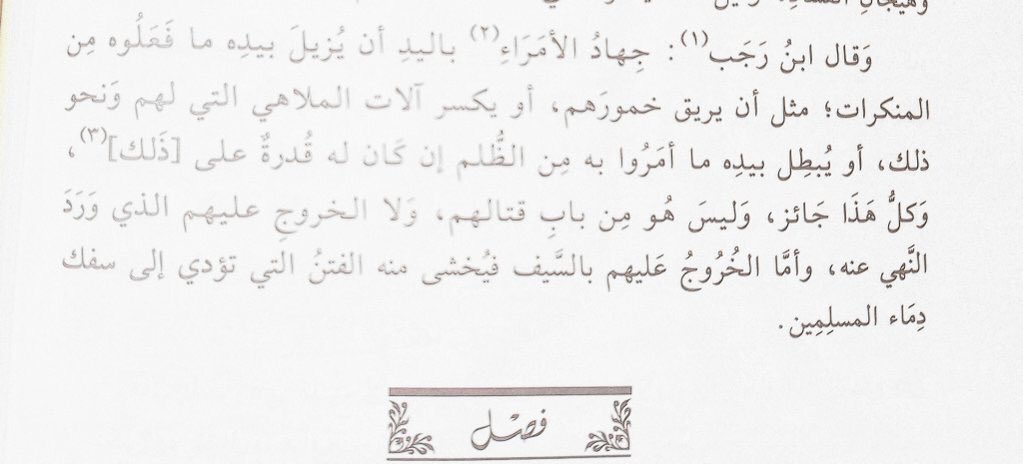 وَهيجانِ الفسادِ،
وَقال ابنُ رَجَب(١): جِهادُ الأمَرَاءِ(٢) باليدِ أن يُزيلَ بيدِه ما فَعَلُوه مِن
المنكرات؛ مثل أن يريق خمورَهم، أو يكسر آلات الملاهي التي لهم وَنحو
ذلك، أو يُبطِل بيدِه ما أمَرُوا به مِن الظُّلم إن كَان له قُدرةٌ على [ذَلك](٣)،
وَكلُّ هَذَا جَائز، وَليسَ هُو مِن بابِ قتالهم، وَلا الخروجِ عليهم الذي وَرَدَ
النَّهي عنه، وأمَّا الخُرُوجُ عَليهم بالسَّيف فيُخشى منه الفتنُ التي تؤدي إلى سفك
دِمَاء المسلِمِين.
فصْل